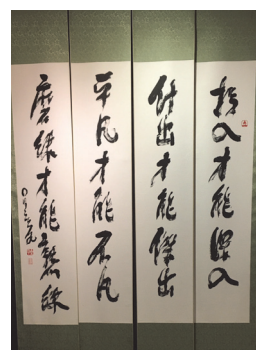 投入才能深入
付出才能傑出
平凡才能不凡
磨練才能熟練